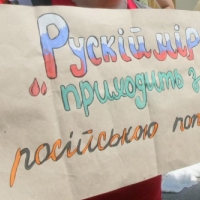 "Рускій мір
приходить з
російською поп